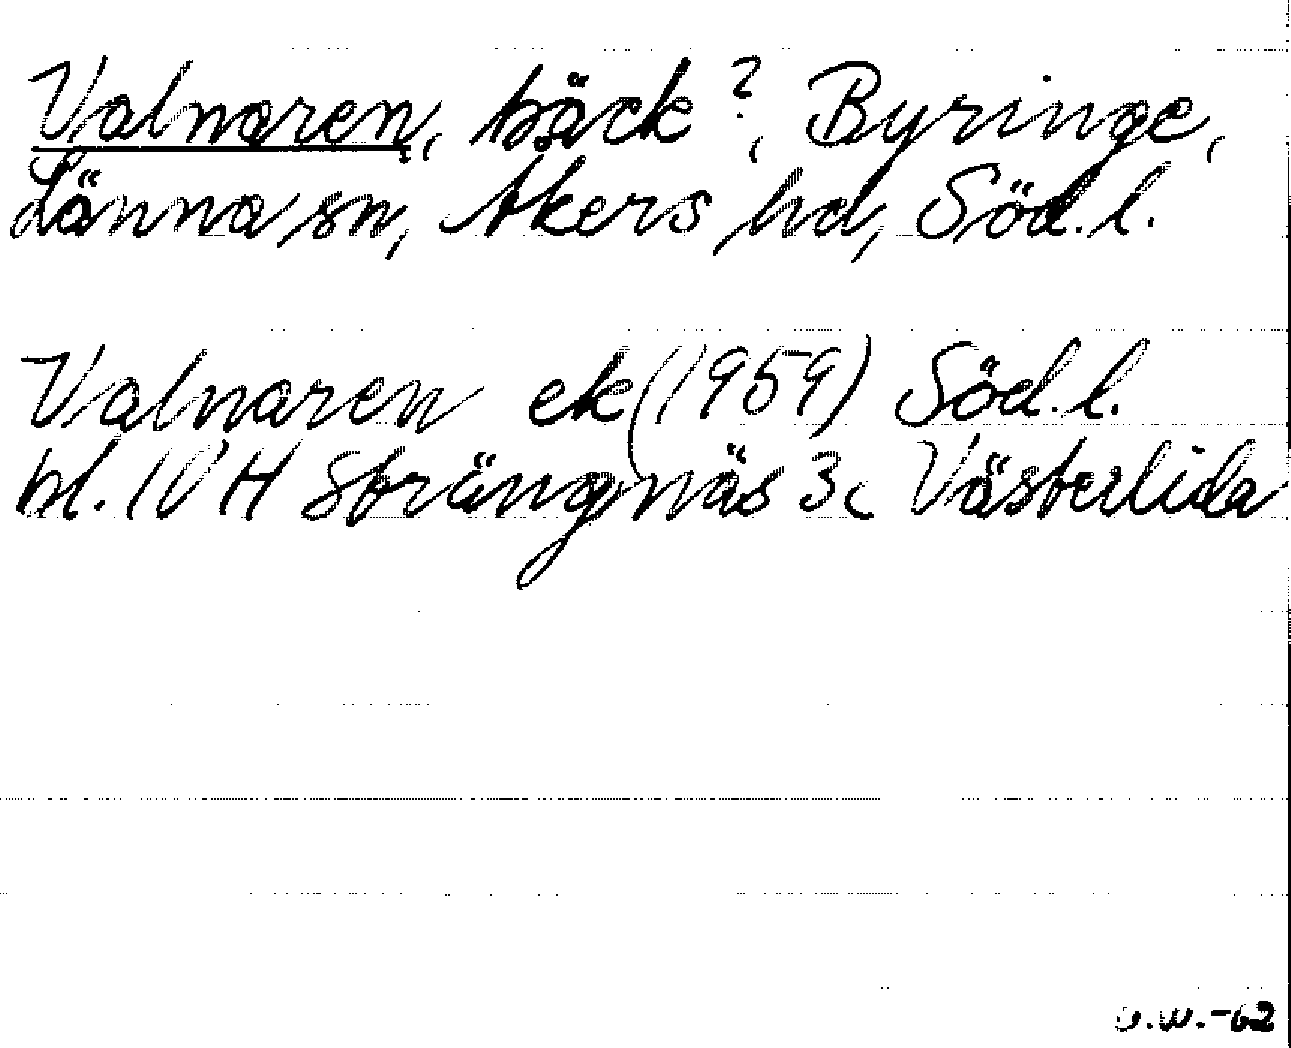 Valnaren, bäck?, Byringe,
Länna sn, Åkers hd, Söd. l.
Valnaren ek (1959) Söd. l.
bl. 10 H Strängnäs 3c Västerlida
-62